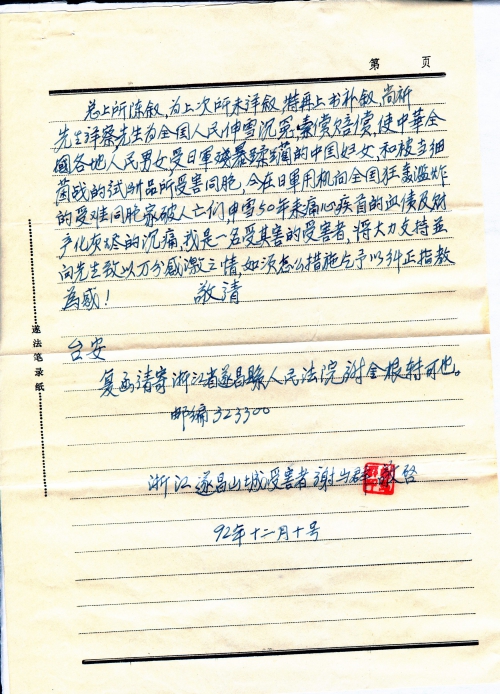 第 页
总上所陈叙，为上次所未详叙，特再上书补叙，尚祈
先生详察先生为全国人民伸雪沉冤，索偿赔偿，使中华全
國各地人民男女，受日軍残暴蹂躏的中国妇女，和被当细
菌战的试验品所受害同胞，今在日軍用机向全国狂轰滥炸
的受难同胞家破人亡们申雪50年来痛心疾首的血债及财
产化灰烬的沉痛，我是一名受其害的受害者，将大力支持並
向先生致以万分感激之情，如须怎么措施乞予以纠正指教
為感！ 敬请
台安
复函请寄浙江省遂昌縣人民法院谢金根转可也。
邮编 323300
浙江遂昌山城受害者谢 群 敬啓
92年十二月十号
遂法笔录纸